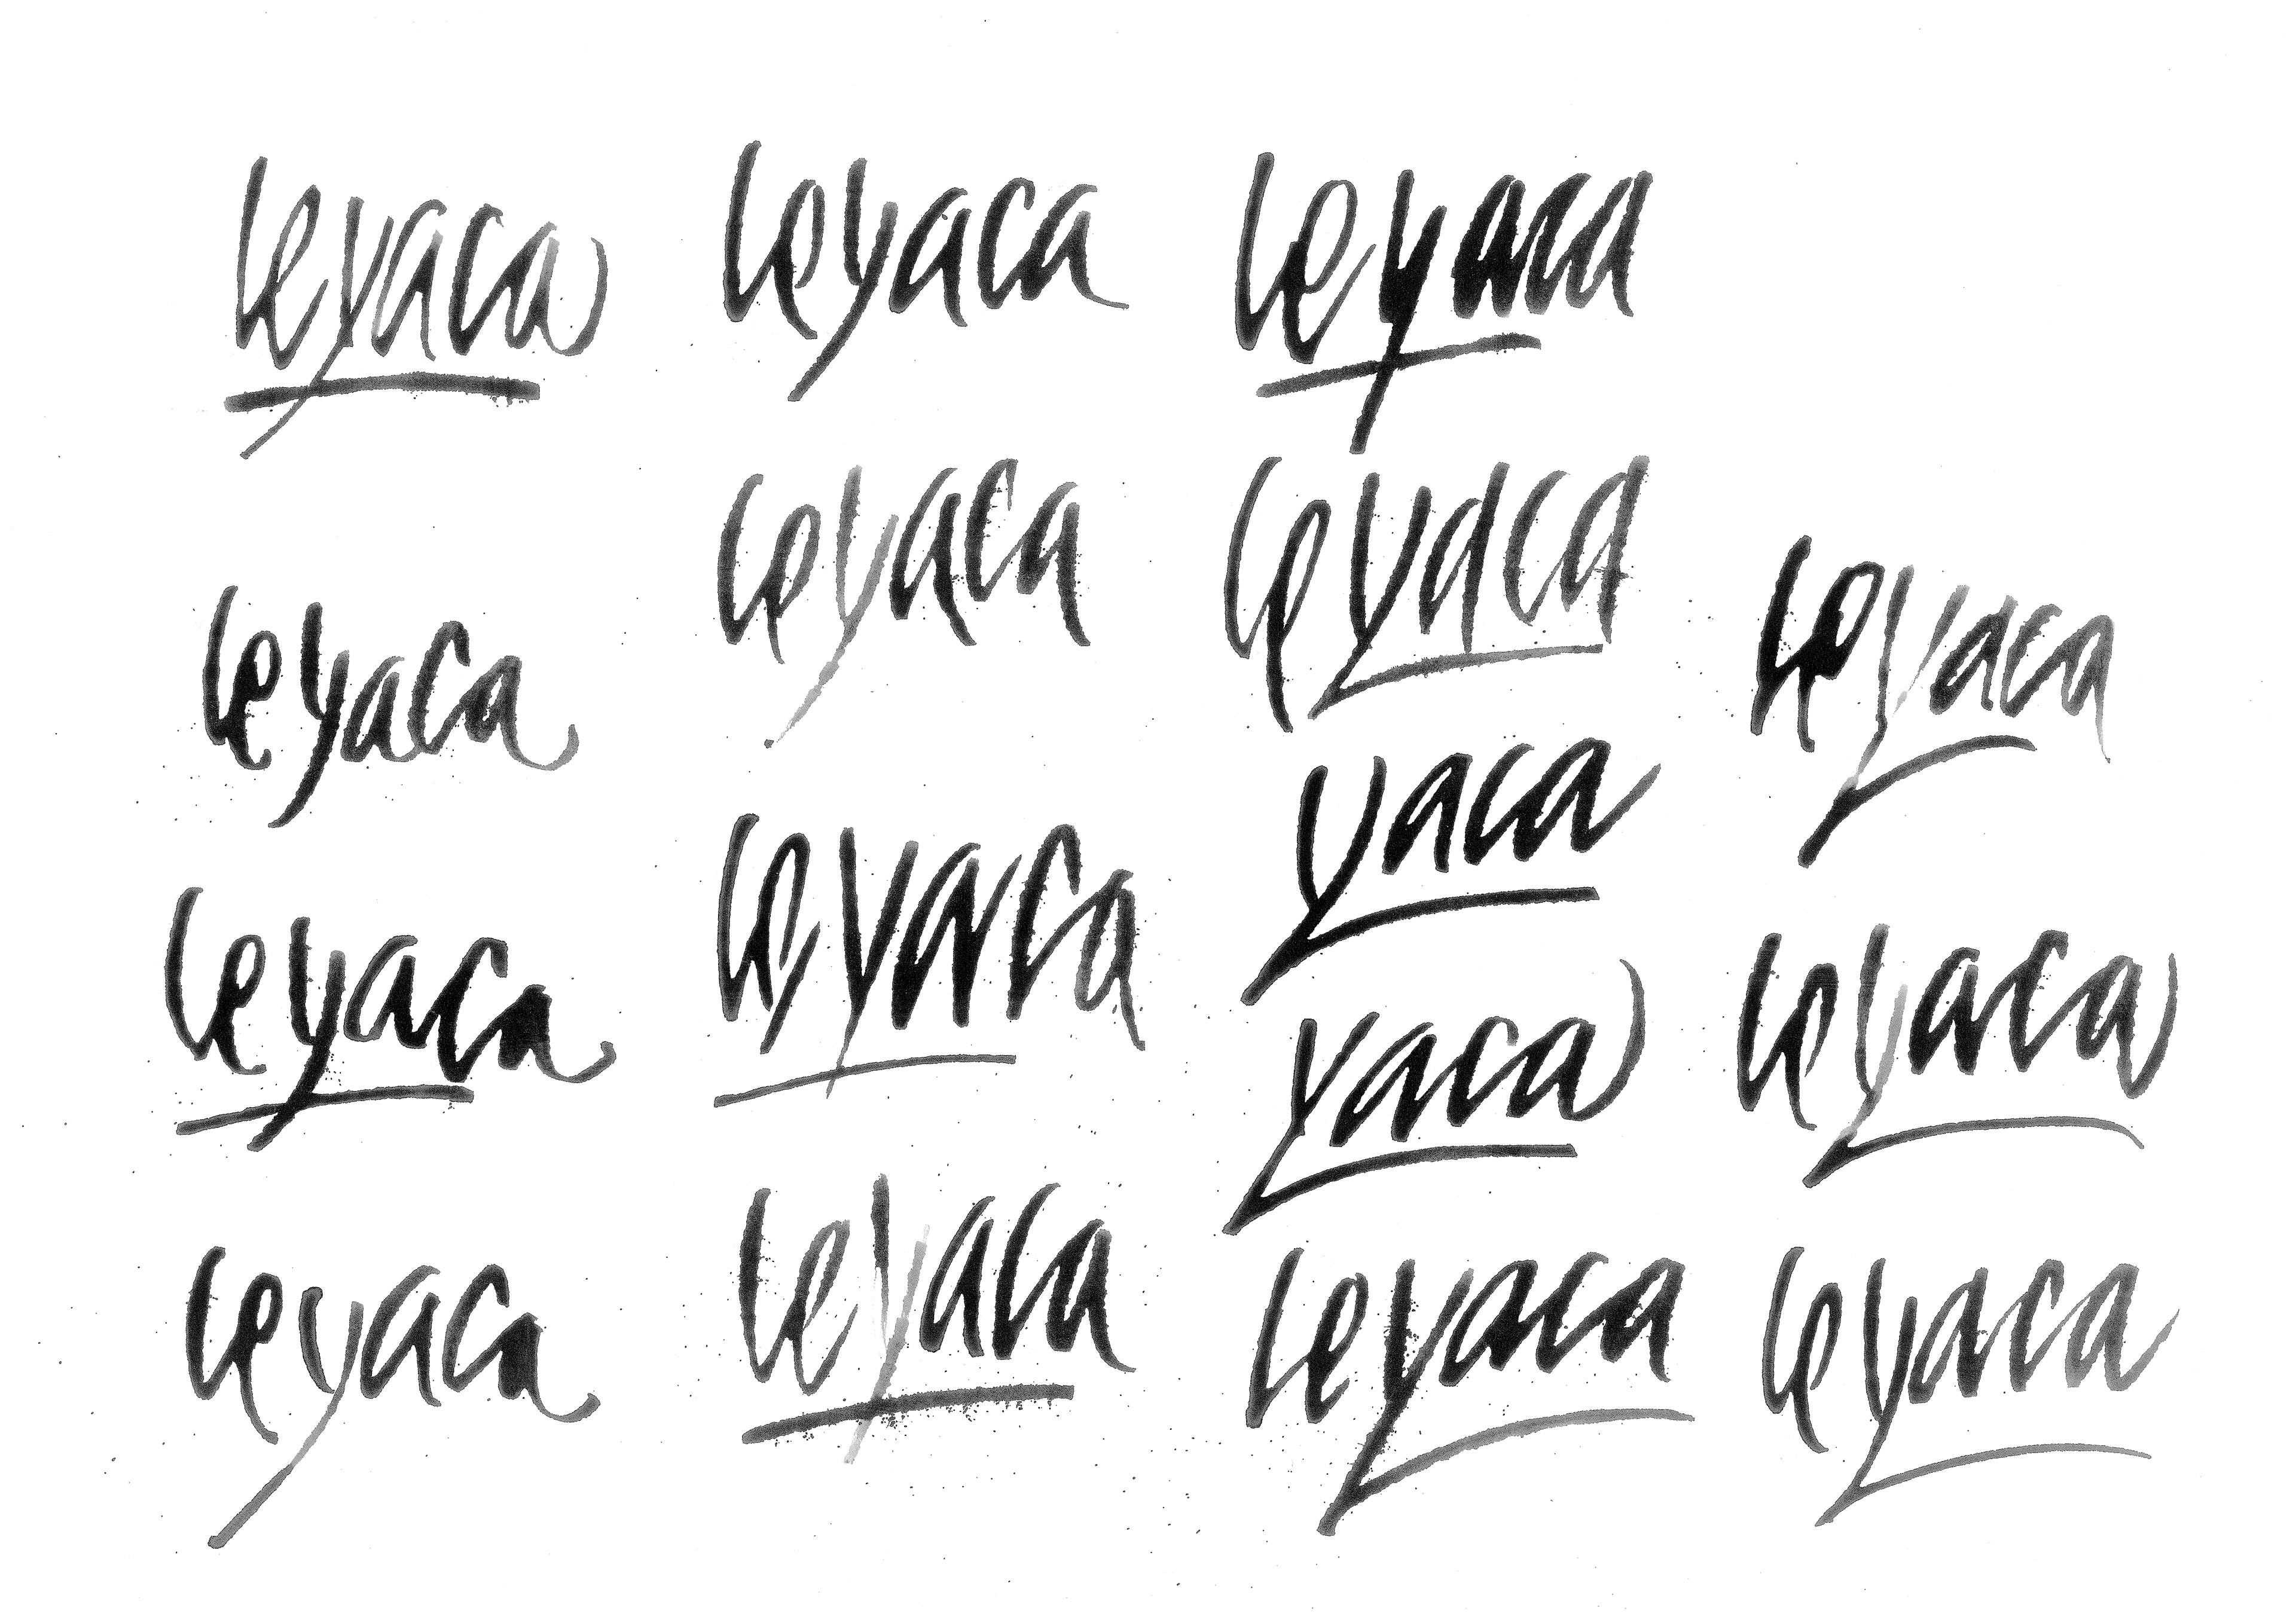 leyaca
leyaca
leyaca
leyaca
leyaca
leyaca
leyaca
leyaca
leyaca
leyaca
yaca
yaca
leyaca
leyaca
leyaca
leyaca